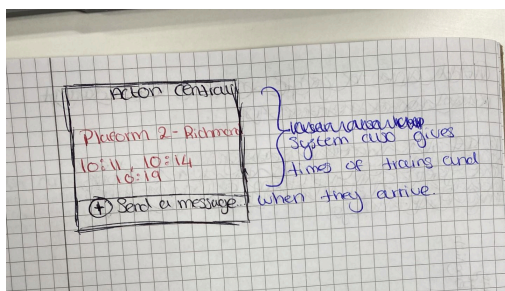 Acton Central
Platform 2 - Richmond
10:11, 10:14
10:19
+ Send a message
System also gives
times of trains and
when they arrive.